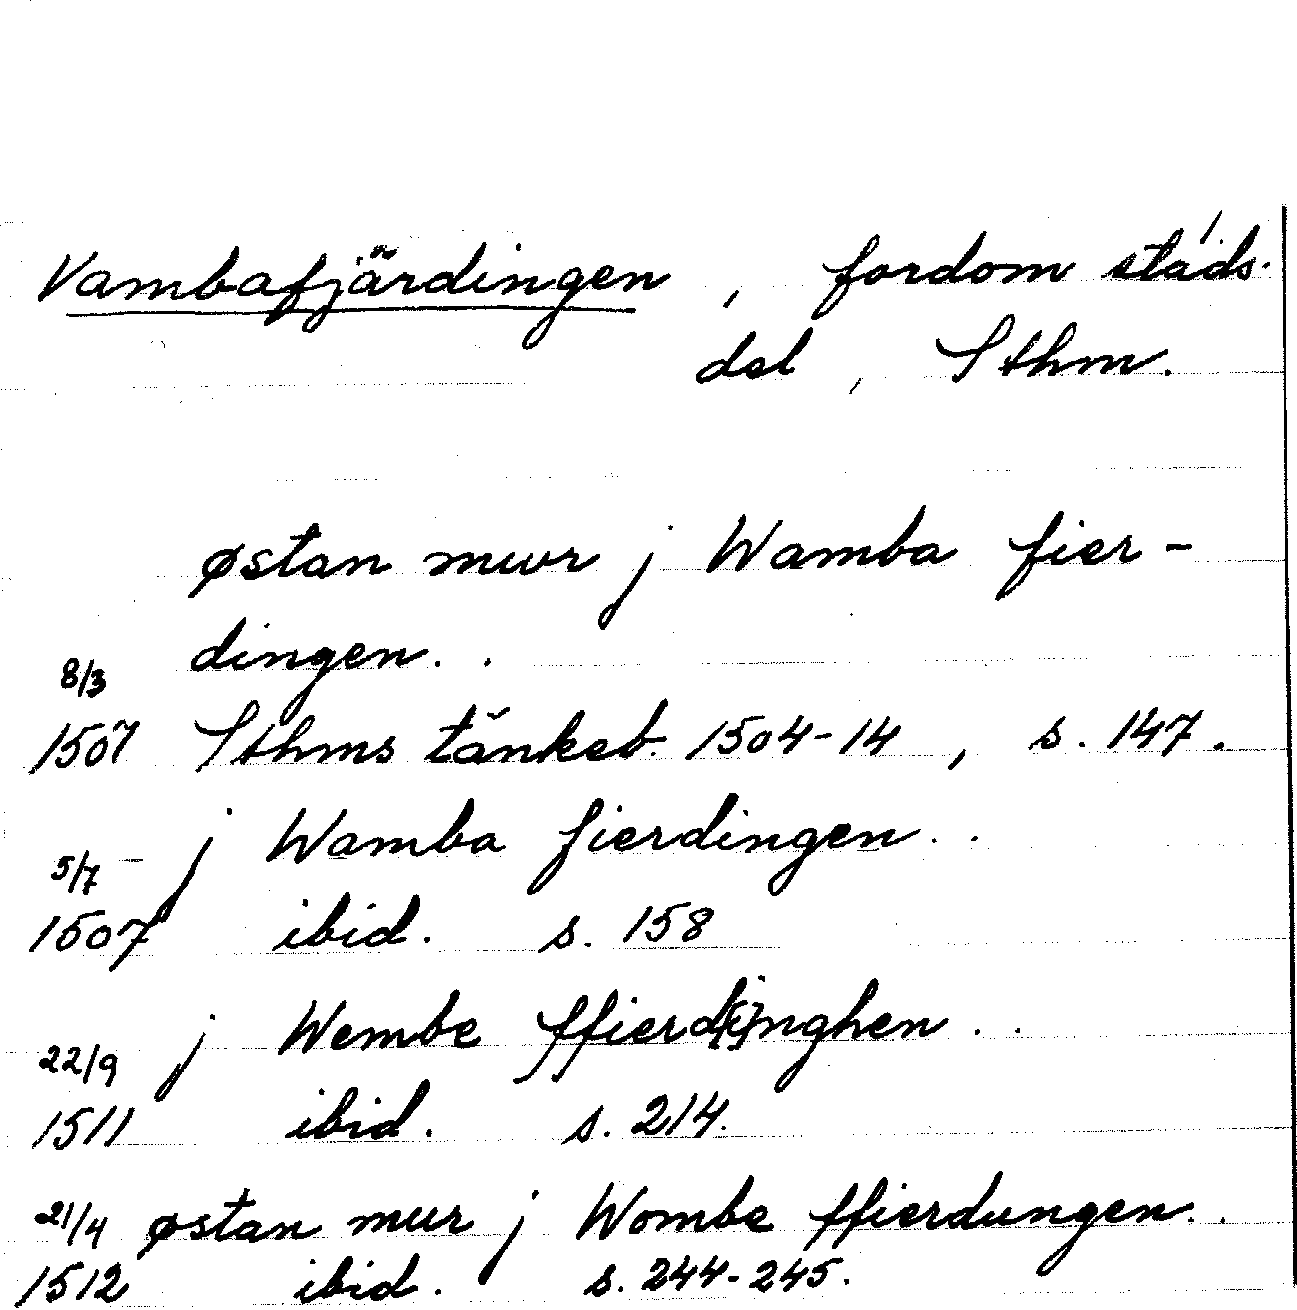 Vambafjärdingen, fordom stads-
del, Sthm.
østan mwr j Wamba fier-
dingen..
8/3
1507 Sthms tänkeb. 1504-14, s. 147.
j Wamba fierdingen..
5/7 -
1507 ibid. s. 158
j Wembe ffierd(i)nghen..
22/9
1511 ibid. s. 214.
21/4 østan mur j Wombe ffierdungen..
1512 ibid. s. 244-245.